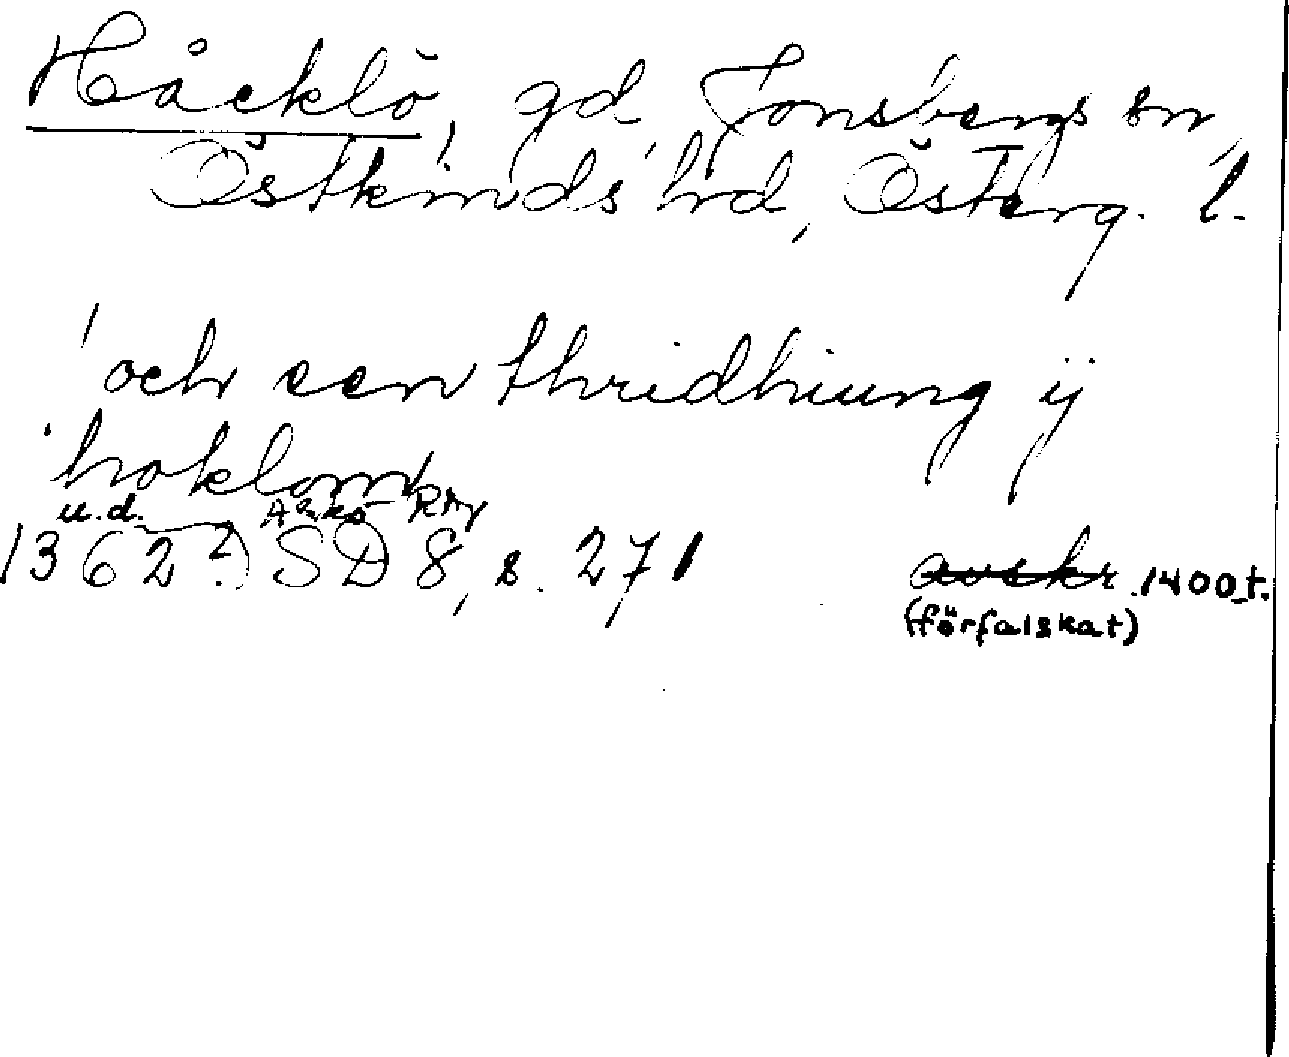 Håcklö, gd, Jonsbergs sn,
Östkinds hrd, Österg. l.
och een thridhiung ij
hoklom
u.d. Arkö
1362(?) SD 8, s. 271 avskr. 1400-t.
(förfalskat)